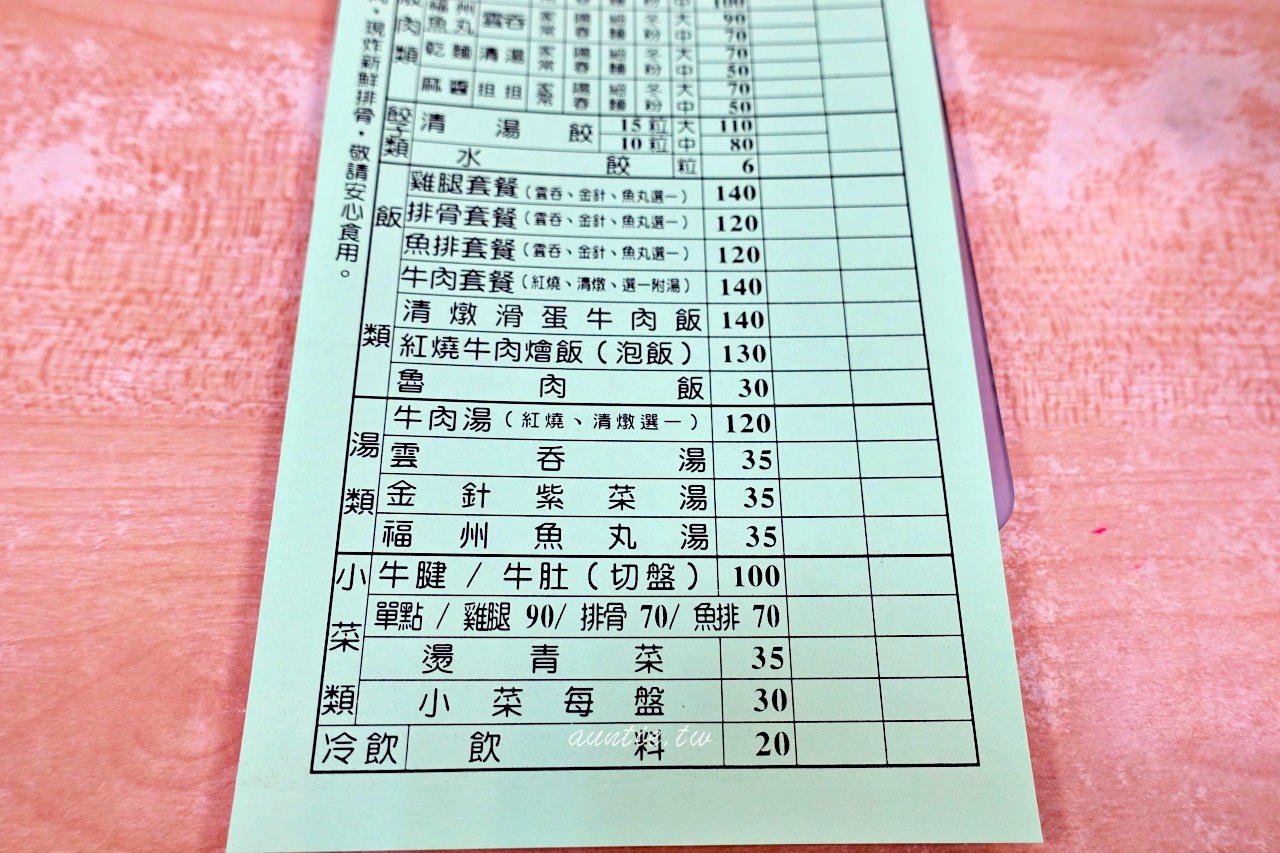 現炸新鮮排骨，敬請安心食用。
肉類
福州魚丸 雲吞 家常 陽春 細麵 冬粉 大 90
中 70
乾麵 清湯 家常 陽春 細麵 冬粉 大 70
中 50
麻醬担担 家常 陽春 細麵 冬粉 大 70
中 50
餃子類
清湯餃 15粒 大 110
10粒 中 80
水餃 粒 6
飯類
雞腿套餐(雲吞、金針、魚丸選一) 140
排骨套餐(雲吞、金針、魚丸選一) 120
魚排套餐(雲吞、金針、魚丸選一) 120
牛肉套餐(紅燒、清燉、選一附湯) 140
清燉滑蛋牛肉飯 140
紅燒牛肉燴飯(泡飯) 130
魯肉飯 30
湯類
牛肉湯(紅燒、清燉選一) 120
雲吞湯 35
金針紫菜湯 35
福州魚丸湯 35
小菜類
牛腱/牛肚(切盤) 100
單點/雞腿 90/排骨 70/魚排 70
燙青菜 35
小菜每盤 30
冷飲 飲料 20